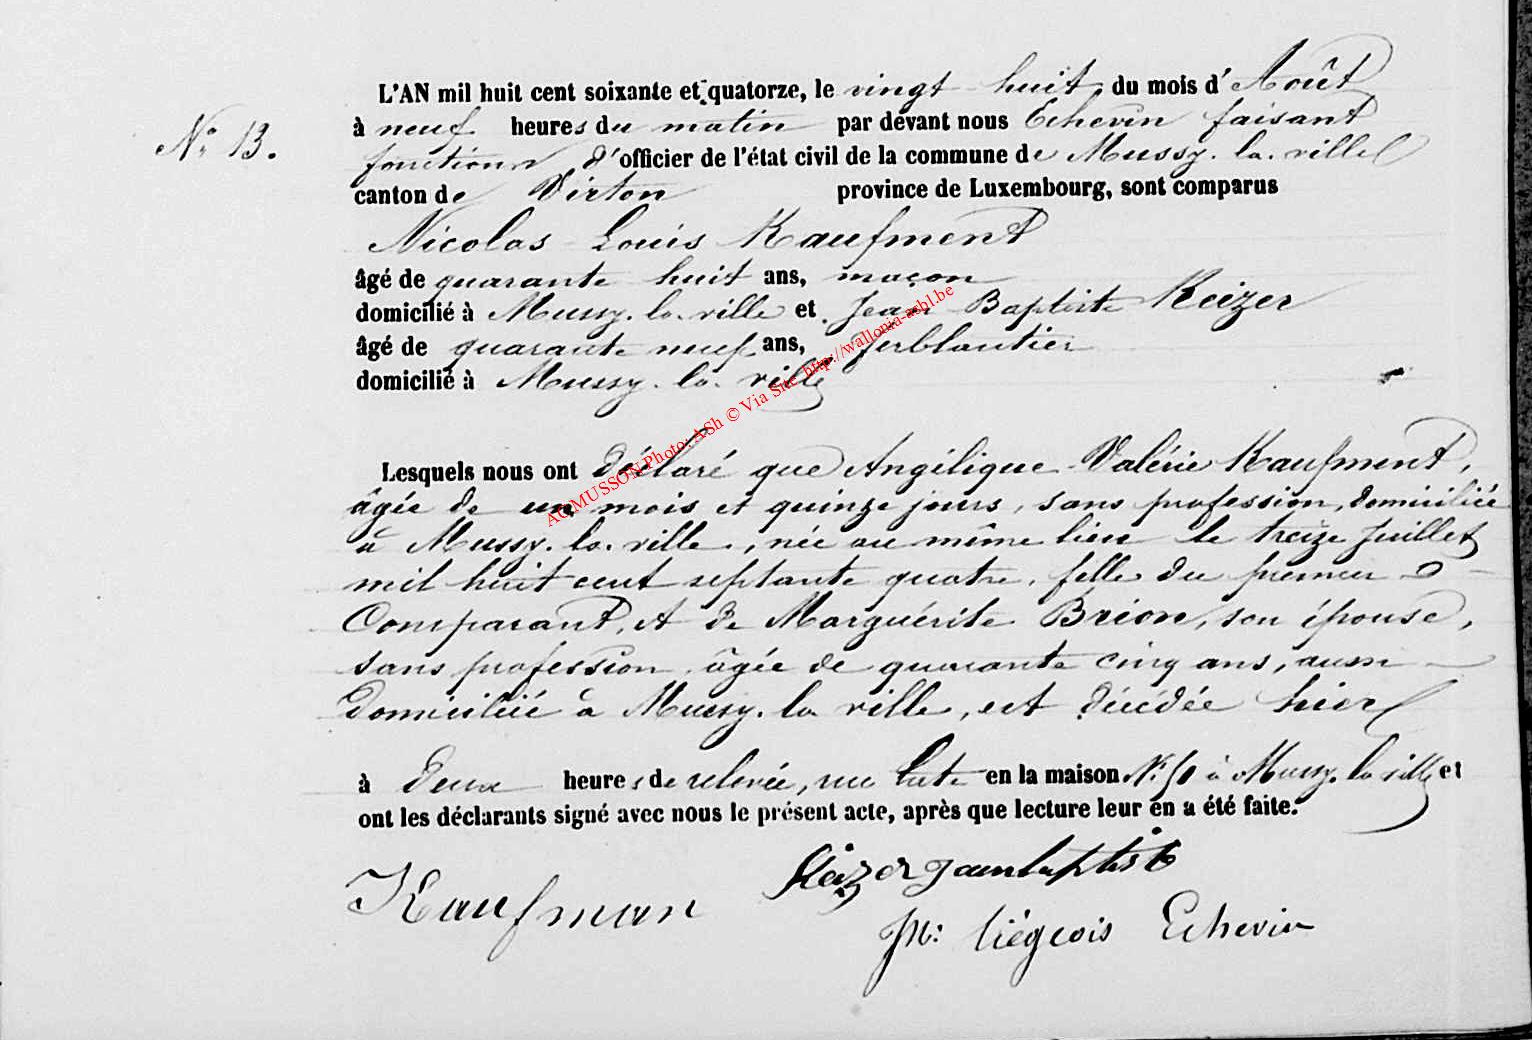 L'AN mil huit cent soixante et quatorze, le vingt huit du mois d'Août
N° 13.
à neuf heures du matin par devant nous Echevin faisant
fonctions d'officier de l'état civil de la commune de Mussy-la-ville
canton de Virton province de Luxembourg, sont comparus
Nicolas Louis Kaufment
âgé de quarante huit ans, maçon
domicilié à Mussy-la-ville et Jean Baptiste Keizer
âgé de quarante neuf ans, ferblantier
domicilié à Mussy-la-ville
AC MUSSON Photo: ASh © Via Site http://wallonia-asbl.be
Lesquels nous ont déclaré que Angélique Valérie Kaufment,
âgée de un mois et quinze jours, sans profession, domiciliée
à Mussy-la-ville, née au même lieu le treize Juillet
mil huit cent septante quatre, fille du premier
Comparant, et de Marguérite Brion, son épouse,
sans profession, âgée de quarante cinq ans, aussi
domiciliée à Mussy-la-ville, est décédée hier
à deux heures de relevée, en la maison N° à Mussy-la-ville et
ont les déclarants signé avec nous le présent acte, après que lecture leur en a été faite.
Keizer Jean baptiste
Kaufman
Liégeois Echevin